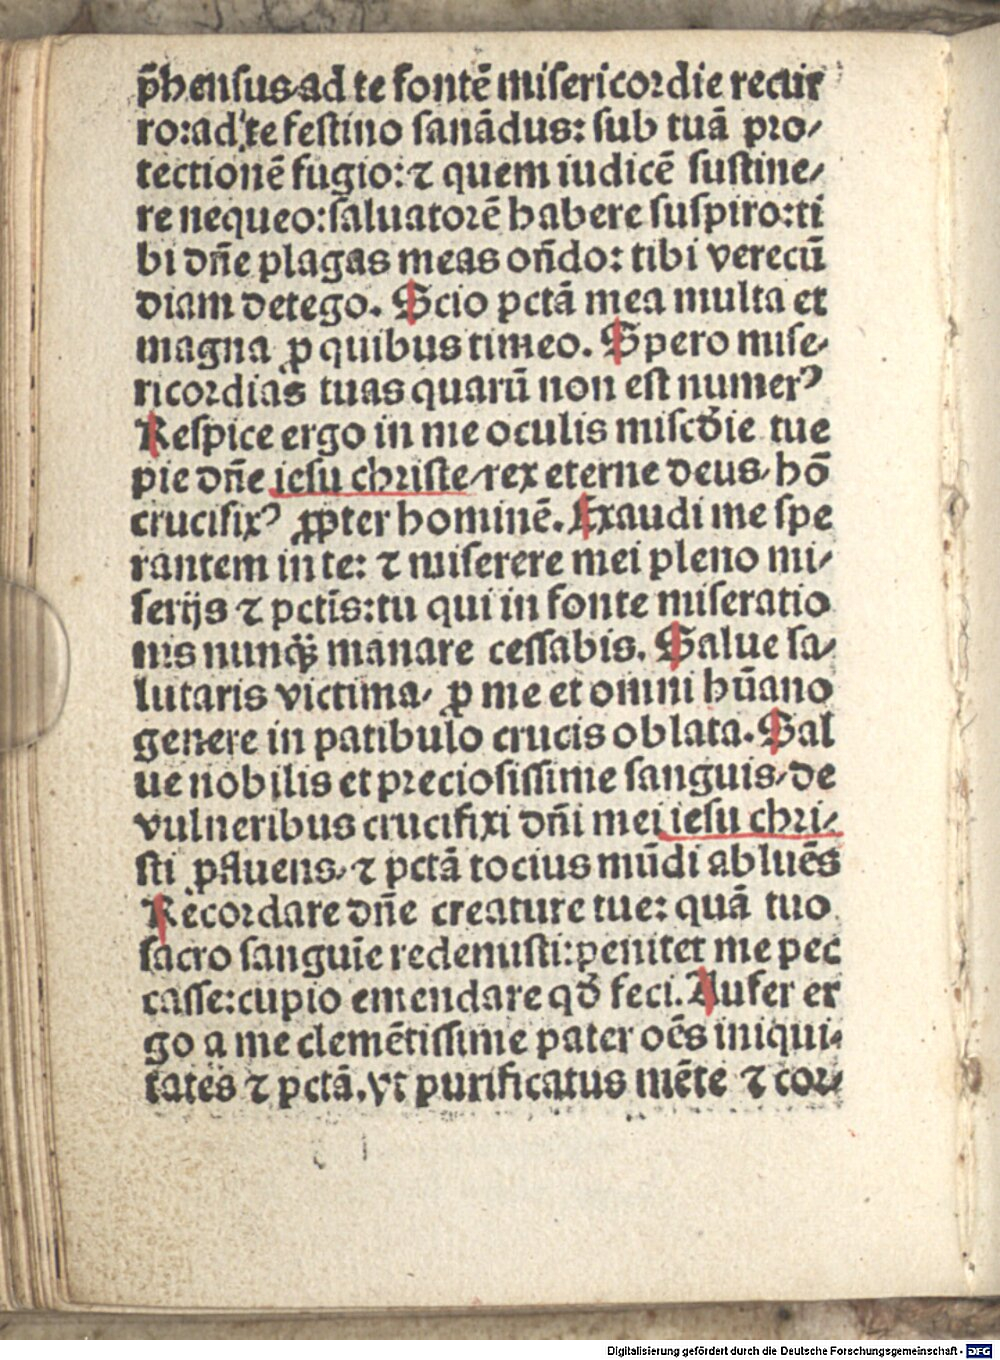 p̄hensus⸝ad te fontē misericordie recur
ro:ad te festino sanādus: sub tuā pro⸗
tectionē fugio: ⁊ quem iudicē sustine⸗
re nequeo:saluatorē habere suspiro:ti
bi dn̄e plagas meas on̄do: tibi verecū
diam detego. Scio pctā mea multa et
magna ꝓ quibus timeo. Spero mise⸗
ricordias tuas quarū non est numerꝰ
Respice ergo in me oculis misc̄die tue
pie dn̄e iesu christe⸝rex eterne deus⸝hō
crucifixꝰ ꝓpter hominē. Exaudi me spe
rantem in te: ⁊ miserere mei pleno mi⸗
serijs ⁊ pctīs:tu qui in fonte miseratio
nis nunqꝫ manare cessabis. Salue sa⸗
lutaris victima⸝ ꝓ me et omni hūano
genere in patibulo crucis oblata. Sal
ue nobilis et preciosissime sanguis⸝de
vulneribus crucifixi dn̄i mei iesu chri⸗
sti ꝓfluens⸝⁊ pctā tocius mūdi abluēs
Recordare dn̄e creature tue: quā tuo
sacro sanguīe redemisti:penitet me pec
casse:cupio emendare qđ feci. Aufer er
go a me clemētissime pater oēs iniqui⸗
tates ⁊ pctā.vt purificatus mēte ⁊ cor⸗
Digitalisierung gefördert durch die Deutsche Forschungsgemeinschaft - DFG